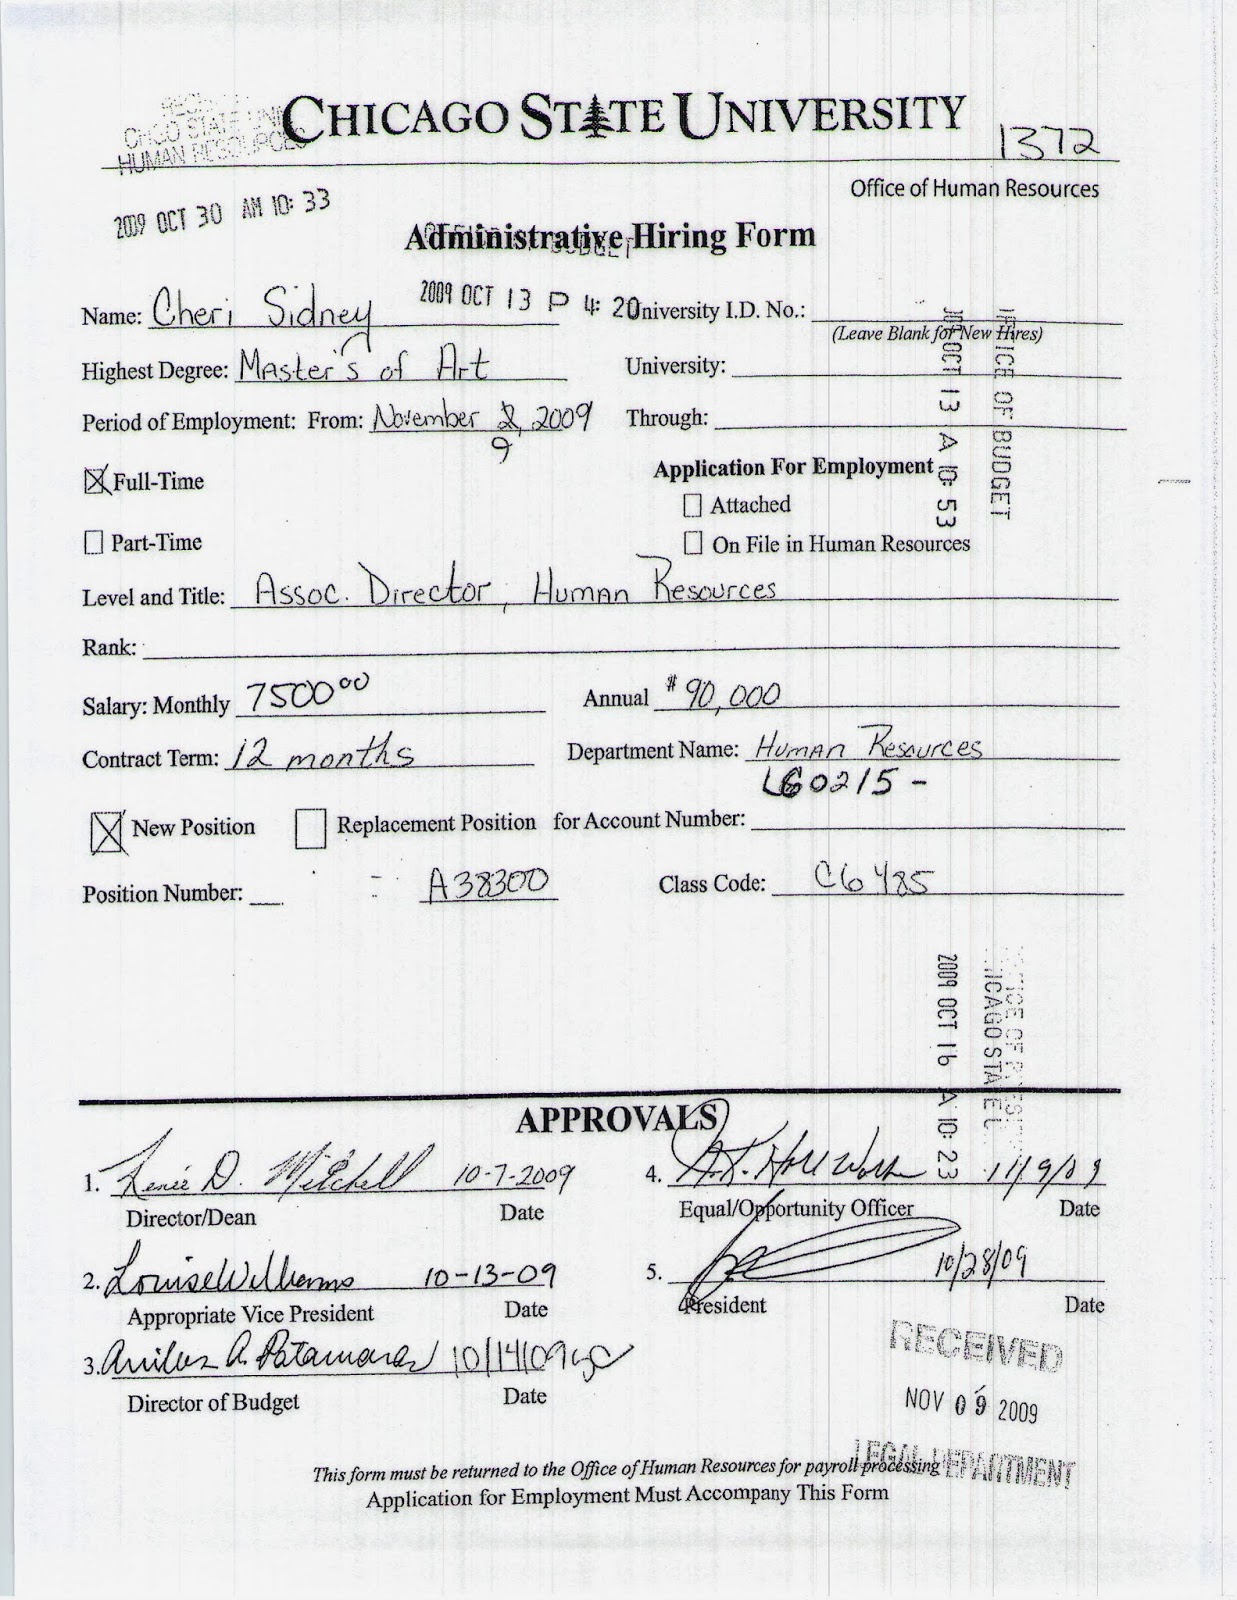 CHICAGO STATE UNIVERSITY
HUMAN RESOURCES
1372
Office of Human Resources
2009 OCT 30 AM 10:33
Administrative Hiring Form
2009 OCT 13 P 4:20
Name: Cheri Sidney University I.D. No.:
(Leave Blank for New Hires)
Highest Degree: Master's of Art University:
Period of Employment: From: November 2, 2009 Through:
9
OCT 13 A 10:53
OFFICE OF BUDGET
Full-Time
Application For Employment
Attached
Part-Time
On File in Human Resources
Level and Title: Assoc. Director, Human Resources
Rank:
Salary: Monthly 7500 00 Annual $90,000
Contract Term: 12 months Department Name: Human Resources
60215 -
New Position Replacement Position for Account Number:
Position Number: A38300 Class Code: C6485
2009 OCT 16 A 10:23
APPROVALS
1. Renée D. Mitchell 10-7-2009
Director/Dean Date
4. 11/9/09
Equal/Opportunity Officer Date
2. Louise Williams 10-13-09
Appropriate Vice President Date
5. 10/28/09
President Date
3. 10/14/09
Director of Budget Date
RECEIVED
NOV 09 2009
LEGAL DEPARTMENT
This form must be returned to the Office of Human Resources for payroll processing
Application for Employment Must Accompany This Form